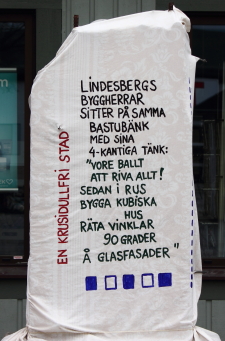 EN KRUSIDULLFRI STAD
LINDESBERGS
BYGGHERRAR
SITTER PÅ SAMMA
BASTUBÄNK
MED SINA
4-KANTIGA TÄNK:
"VORE BALLT
ATT RIVA ALLT!
SEDAN I RUS
BYGGA KUBISKA
HUS
RÄTA VINKLAR
90 GRADER
Å GLASFASADER"